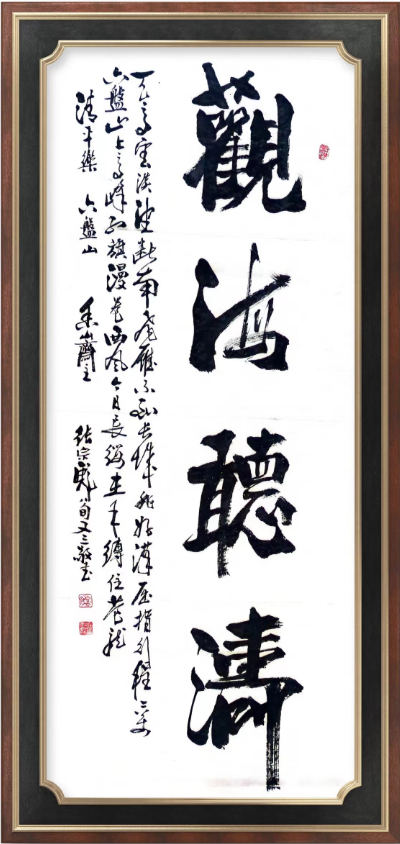 觀海聽濤
天高雲淡望斷南飛雁不到長城非好漢屈指行程二萬
六盤山上高峰紅旗漫卷西風今日長纓在手縛住蒼龍
清平樂 六盤山 山齋主 宗 旬又三敬書